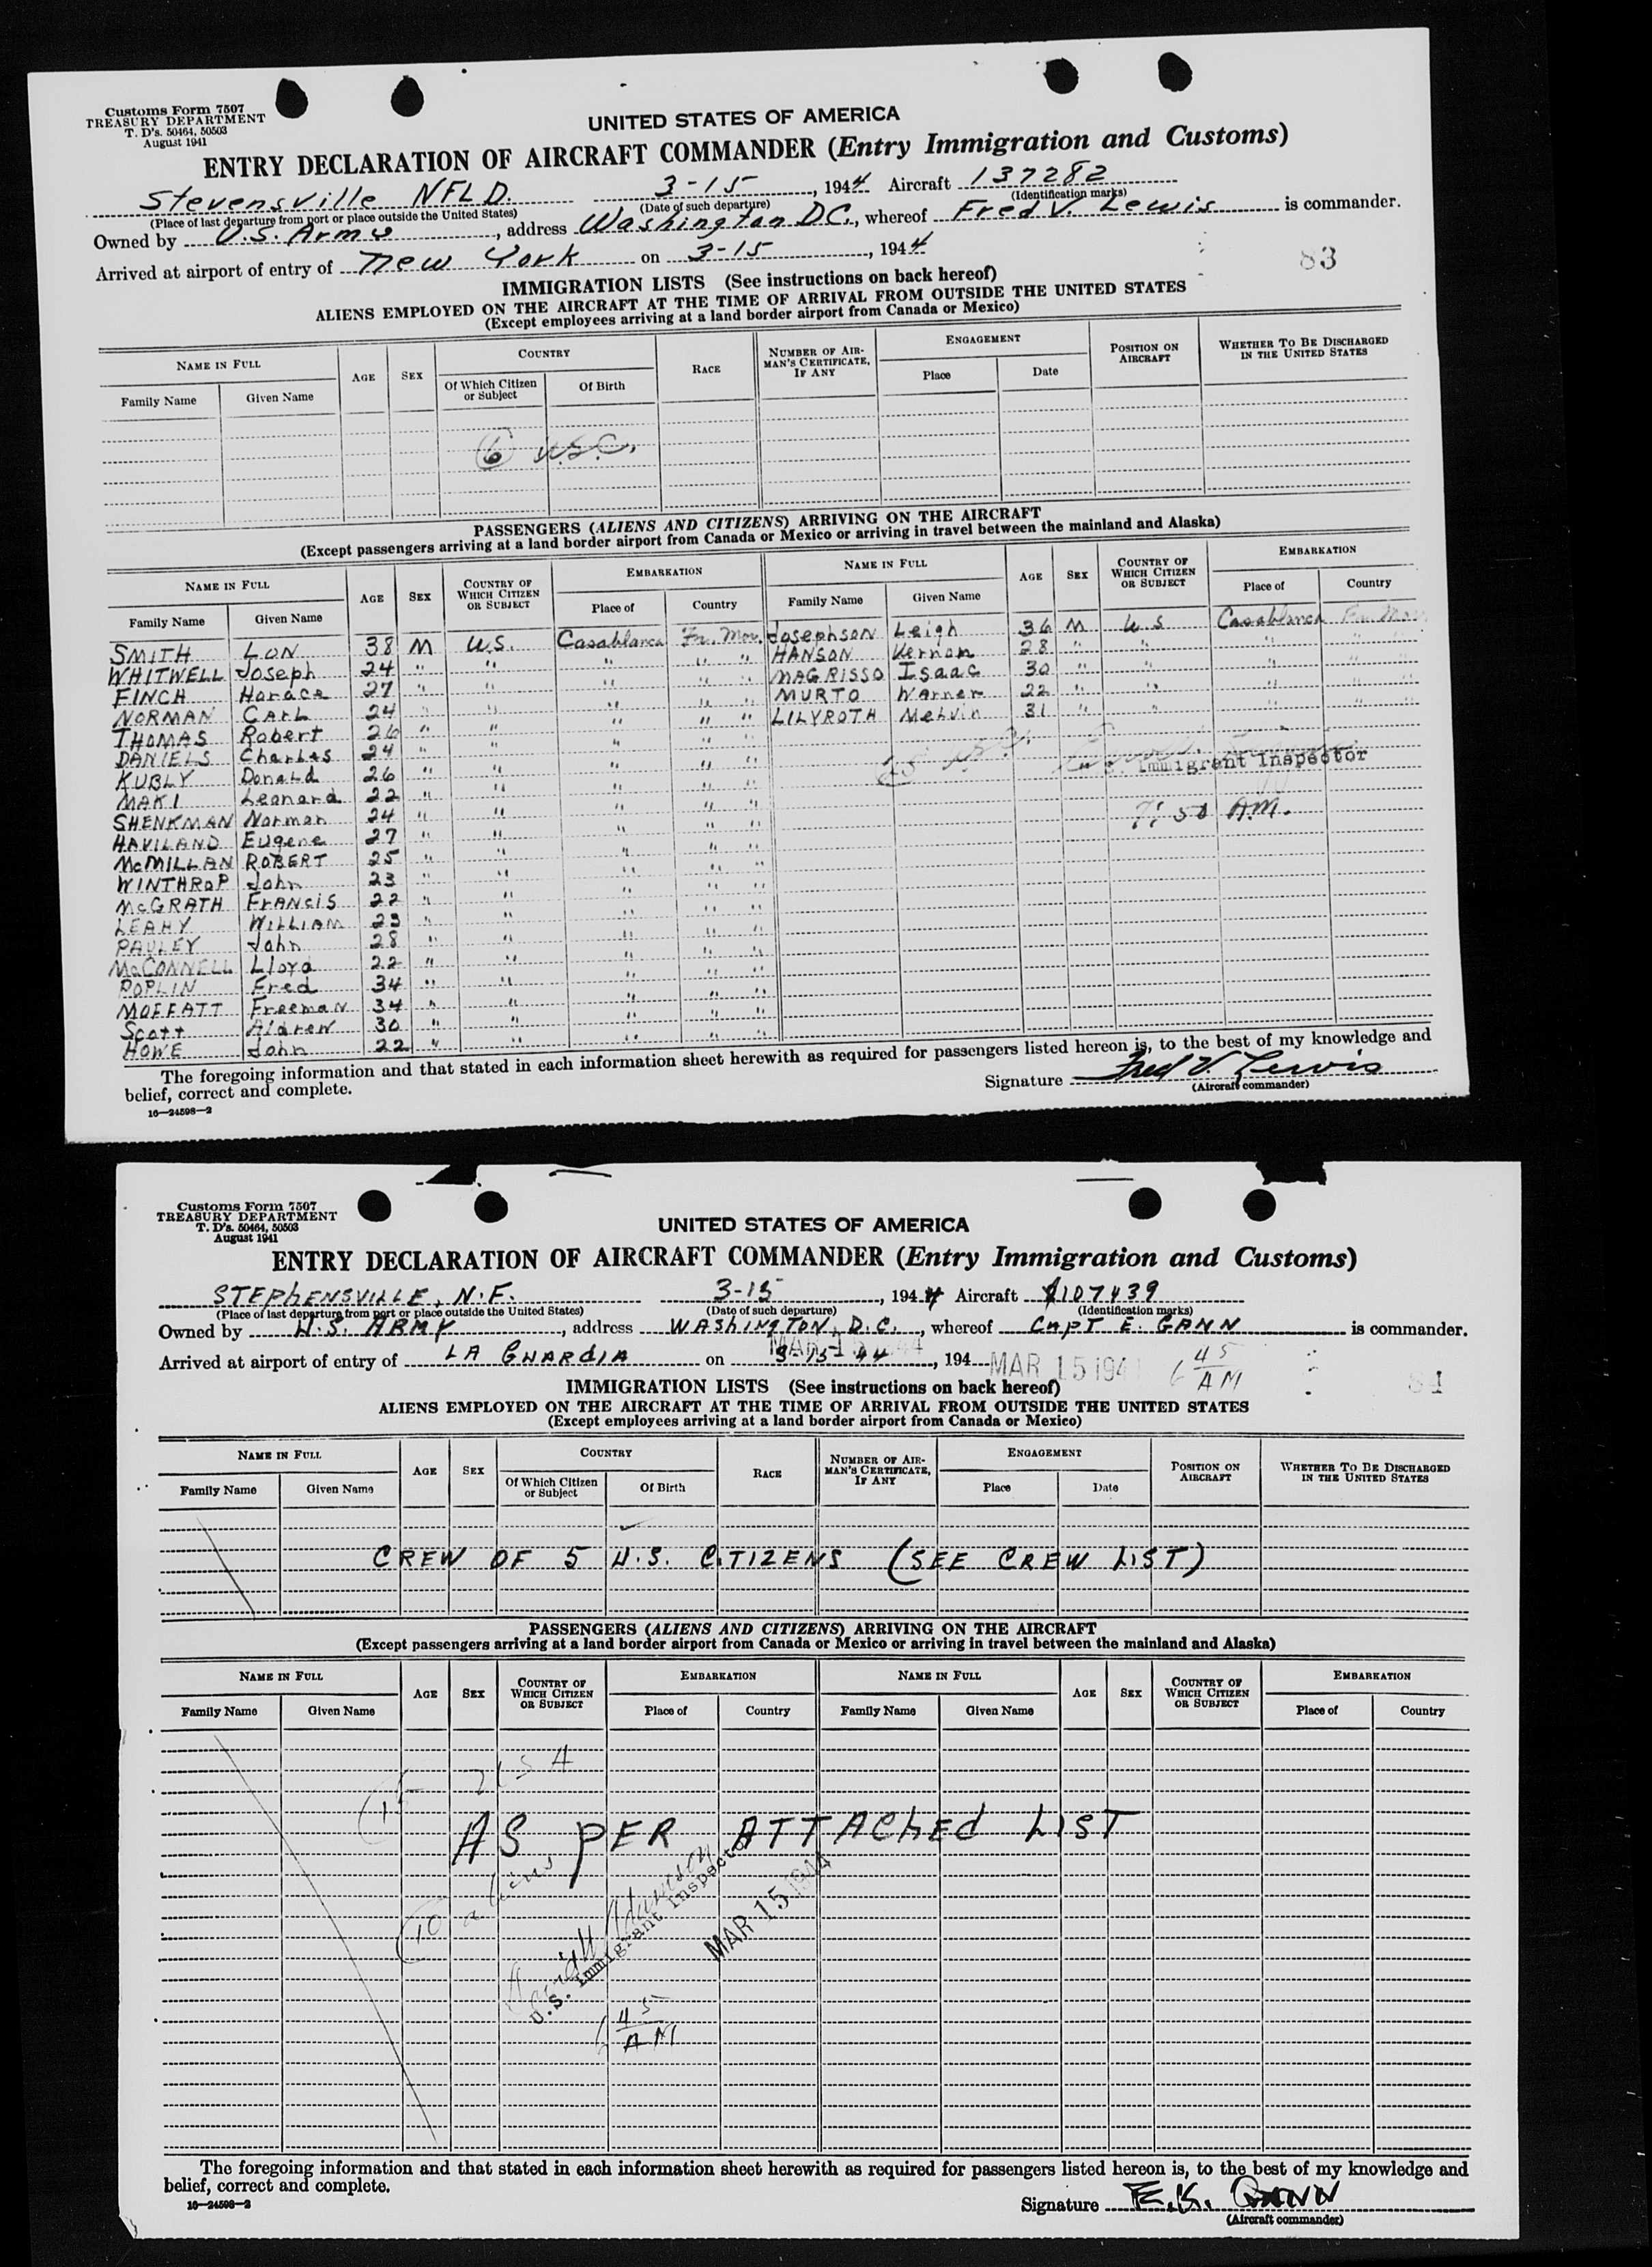 Customs Form 7507
TREASURY DEPARTMENT
T. D's. 50464, 50503
August 1941
UNITED STATES OF AMERICA
ENTRY DECLARATION OF AIRCRAFT COMMANDER (Entry Immigration and Customs)
Stevensville NFLD. 3-15, 1944 Aircraft 137282
(Place of last departure from port or place outside the United States) (Date of such departure) (Identification marks)
Owned by U.S. Army, address Washington D.C., whereof Fred V. Lewis is commander.
Arrived at airport of entry of New York on 3-15, 1944
83
IMMIGRATION LISTS (See instructions on back hereof)
ALIENS EMPLOYED ON THE AIRCRAFT AT THE TIME OF ARRIVAL FROM OUTSIDE THE UNITED STATES
(Except employees arriving at a land border airport from Canada or Mexico)
NAME IN FULL AGE SEX COUNTRY RACE NUMBER OF AIRMAN'S CERTIFICATE, IF ANY ENGAGEMENT POSITION ON AIRCRAFT WHETHER TO BE DISCHARGED IN THE UNITED STATES
Family Name Given Name Of Which Citizen or Subject Of Birth Place Date
6 U.S.C.
PASSENGERS (ALIENS AND CITIZENS) ARRIVING ON THE AIRCRAFT
(Except passengers arriving at a land border airport from Canada or Mexico or arriving in travel between the mainland and Alaska)
NAME IN FULL AGE SEX COUNTRY OF WHICH CITIZEN OR SUBJECT EMBARKATION NAME IN FULL AGE SEX COUNTRY OF WHICH CITIZEN OR SUBJECT EMBARKATION
Family Name Given Name Place of Country Family Name Given Name Place of Country
SMITH LON 38 M U.S. Casablanca Fr. Mor. Josephson Leigh 36 M U S Casablanca Fr. Mor.
WHITWELL Joseph 24 " " " " " HANSON Vernon 28 " " " " "
FINCH Horace 27 " " " " " MAGRISSO Isaac 30 " " " " "
NORMAN CARL 24 " " " " " MURTO Warner 22 " " " " "
THOMAS Robert 26 " " " " " LILYROTH Melvin 31 " " " " "
DANIELS Charles 24 " " " " "
KUBLY Donald 26 " " " " "
MAKI Leonard 22 " " " " "
SHENKMAN Norman 24 " " " " "
HAVILAND Eugene 27 " " " " "
McMILLAN ROBERT 25 " " " " "
WINTHROP John 23 " " " " "
McGRATH FRANCIS 22 " " " " "
LEAHY WILLIAM 23 " " " " "
PAULEY John 28 " " " " "
McCONNELL Lloyd 22 " " " " "
POPLIN Fred 34 " " " " "
MOFFATT Freeman 34 " " " " "
Scott Aldrew 30 " " " " "
HOWE John 22 " " " " "
Immigrant Inspector
7:50 A.M.
The foregoing information and that stated in each information sheet herewith as required for passengers listed hereon is, to the best of my knowledge and
belief, correct and complete.
Signature Fred V. Lewis
(Aircraft commander)
16—24598—2
Customs Form 7507
TREASURY DEPARTMENT
T. D's. 50464, 50503
August 1941
UNITED STATES OF AMERICA
ENTRY DECLARATION OF AIRCRAFT COMMANDER (Entry Immigration and Customs)
STEPHENSVILLE, N.F. 3-15, 1944 Aircraft 107439
(Place of last departure from port or place outside the United States) (Date of such departure) (Identification marks)
Owned by U.S. ARMY, address WASHINGTON, D.C., whereof CAPT E. GANN is commander.
Arrived at airport of entry of LA GUARDIA on 3-15-44, 194 MAR 15 194 6 45 AM
84
IMMIGRATION LISTS (See instructions on back hereof)
ALIENS EMPLOYED ON THE AIRCRAFT AT THE TIME OF ARRIVAL FROM OUTSIDE THE UNITED STATES
(Except employees arriving at a land border airport from Canada or Mexico)
NAME IN FULL AGE SEX COUNTRY RACE NUMBER OF AIRMAN'S CERTIFICATE, IF ANY ENGAGEMENT POSITION ON AIRCRAFT WHETHER TO BE DISCHARGED IN THE UNITED STATES
Family Name Given Name Of Which Citizen or Subject Of Birth Place Date
CREW OF 5 U.S. CITIZENS (SEE CREW LIST)
PASSENGERS (ALIENS AND CITIZENS) ARRIVING ON THE AIRCRAFT
(Except passengers arriving at a land border airport from Canada or Mexico or arriving in travel between the mainland and Alaska)
NAME IN FULL AGE SEX COUNTRY OF WHICH CITIZEN OR SUBJECT EMBARKATION NAME IN FULL AGE SEX COUNTRY OF WHICH CITIZEN OR SUBJECT EMBARKATION
Family Name Given Name Place of Country Family Name Given Name Place of Country
15 USA
AS PER ATTACHED LIST
10 aliens
U.S. Immigrant Inspector
MAR 15 1944
6 45 AM
The foregoing information and that stated in each information sheet herewith as required for passengers listed hereon is, to the best of my knowledge and
belief, correct and complete.
Signature E.K. GANN
(Aircraft commander)
16—24598—2